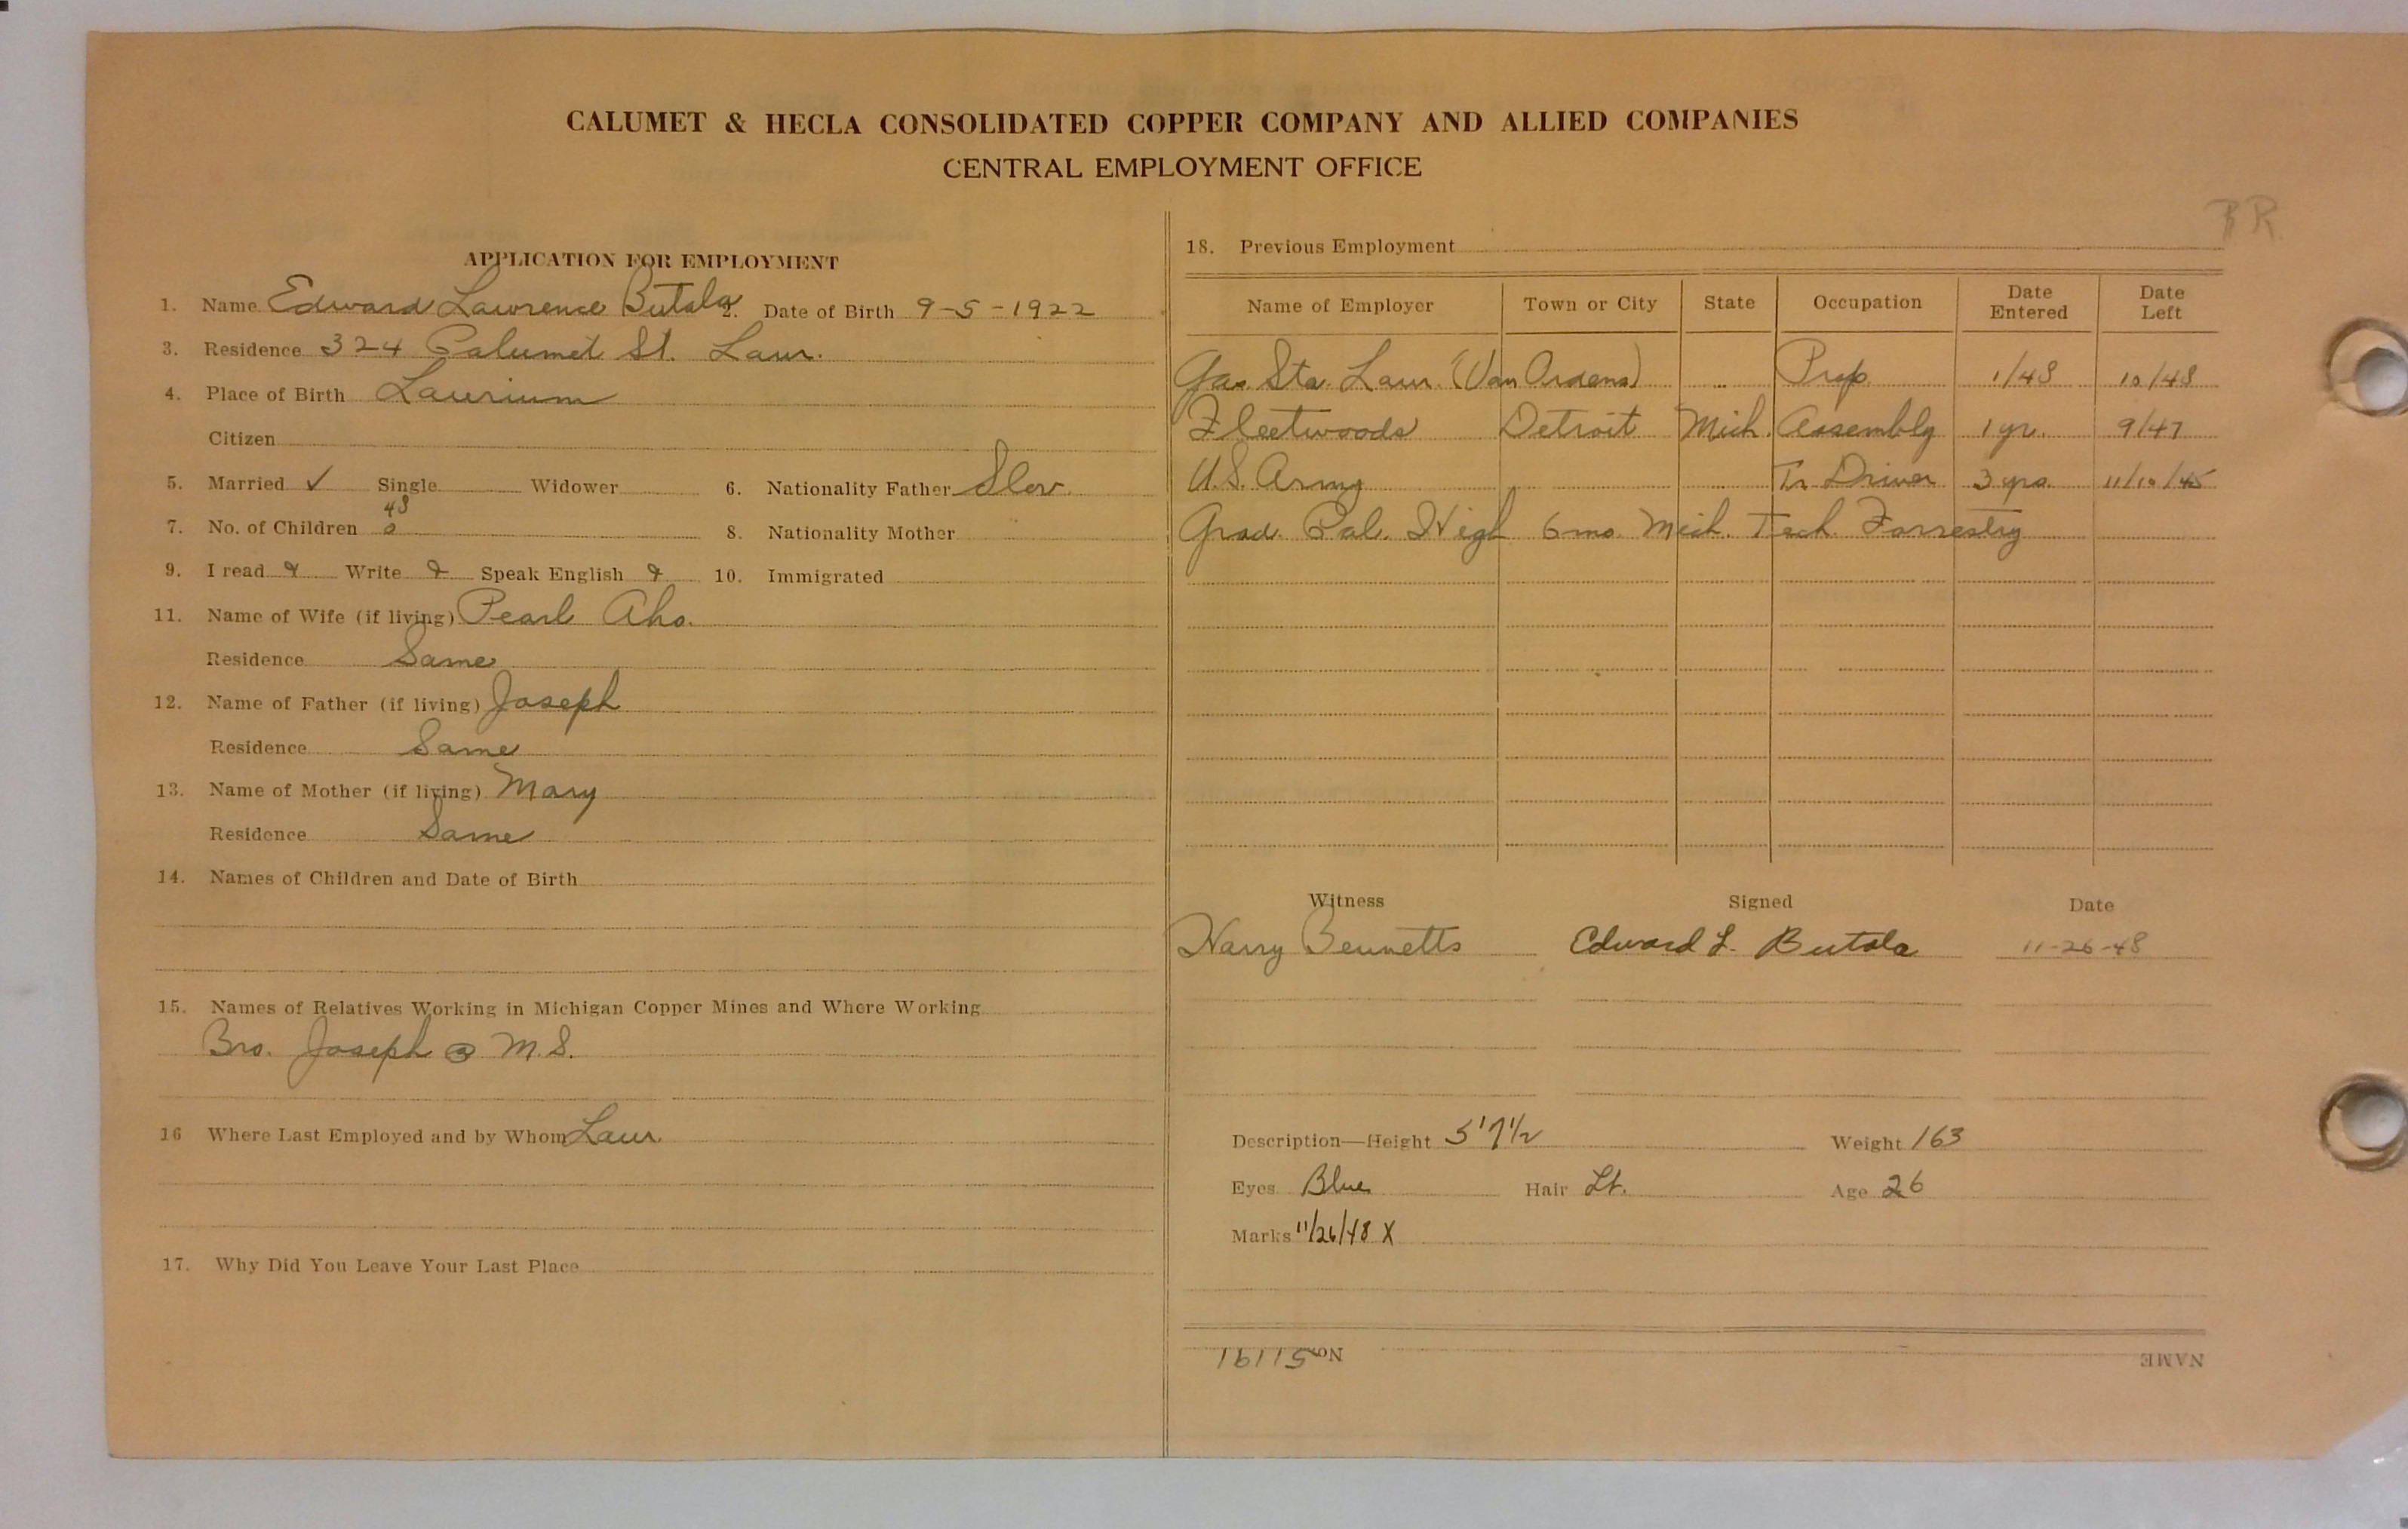 CALUMET & HECLA CONSOLIDATED COPPER COMPANY AND ALLIED COMPANIES
CENTRAL EMPLOYMENT OFFICE
BR
APPLICATION FOR EMPLOYMENT
1. Name Edward Lawrence Butala 2. Date of Birth 9-5-1922
3. Residence 324 Calumet St. Laur.
4. Place of Birth Laurium
Citizen
5. Married ✓ Single Widower 6. Nationality Father Slov.
48
7. No. of Children 0 8. Nationality Mother
9. I read Write Speak English 10. Immigrated
11. Name of Wife (if living) Pearl Aho.
Residence Same
12. Name of Father (if living) Joseph
Residence Same
13. Name of Mother (if living) Mary
Residence Same
14. Names of Children and Date of Birth
15. Names of Relatives Working in Michigan Copper Mines and Where Working
Bro. Joseph @ M.S.
16 Where Last Employed and by Whom Laur.
17. Why Did You Leave Your Last Place
18. Previous Employment
Name of Employer Town or City State Occupation Date Entered Date Left
Gas. Sta. Laur. (Van Ordens) Prop. 1/48 10/48
Fleetwoods Detroit Mich. Assembly 1 yr. 9/47
U.S. Army Tr. Driver 3 yrs. 11/10/45
Grad. Cal. High 6 mo. Mich. Tech. Forrestry
Witness Signed Date
Harry Bennetts Edward L. Butala 11-26-48
Description—Height 5'7½ Weight 163
Eyes Blue Hair Lt. Age 26
Marks 11/26/48 X
No. 51191 NAME